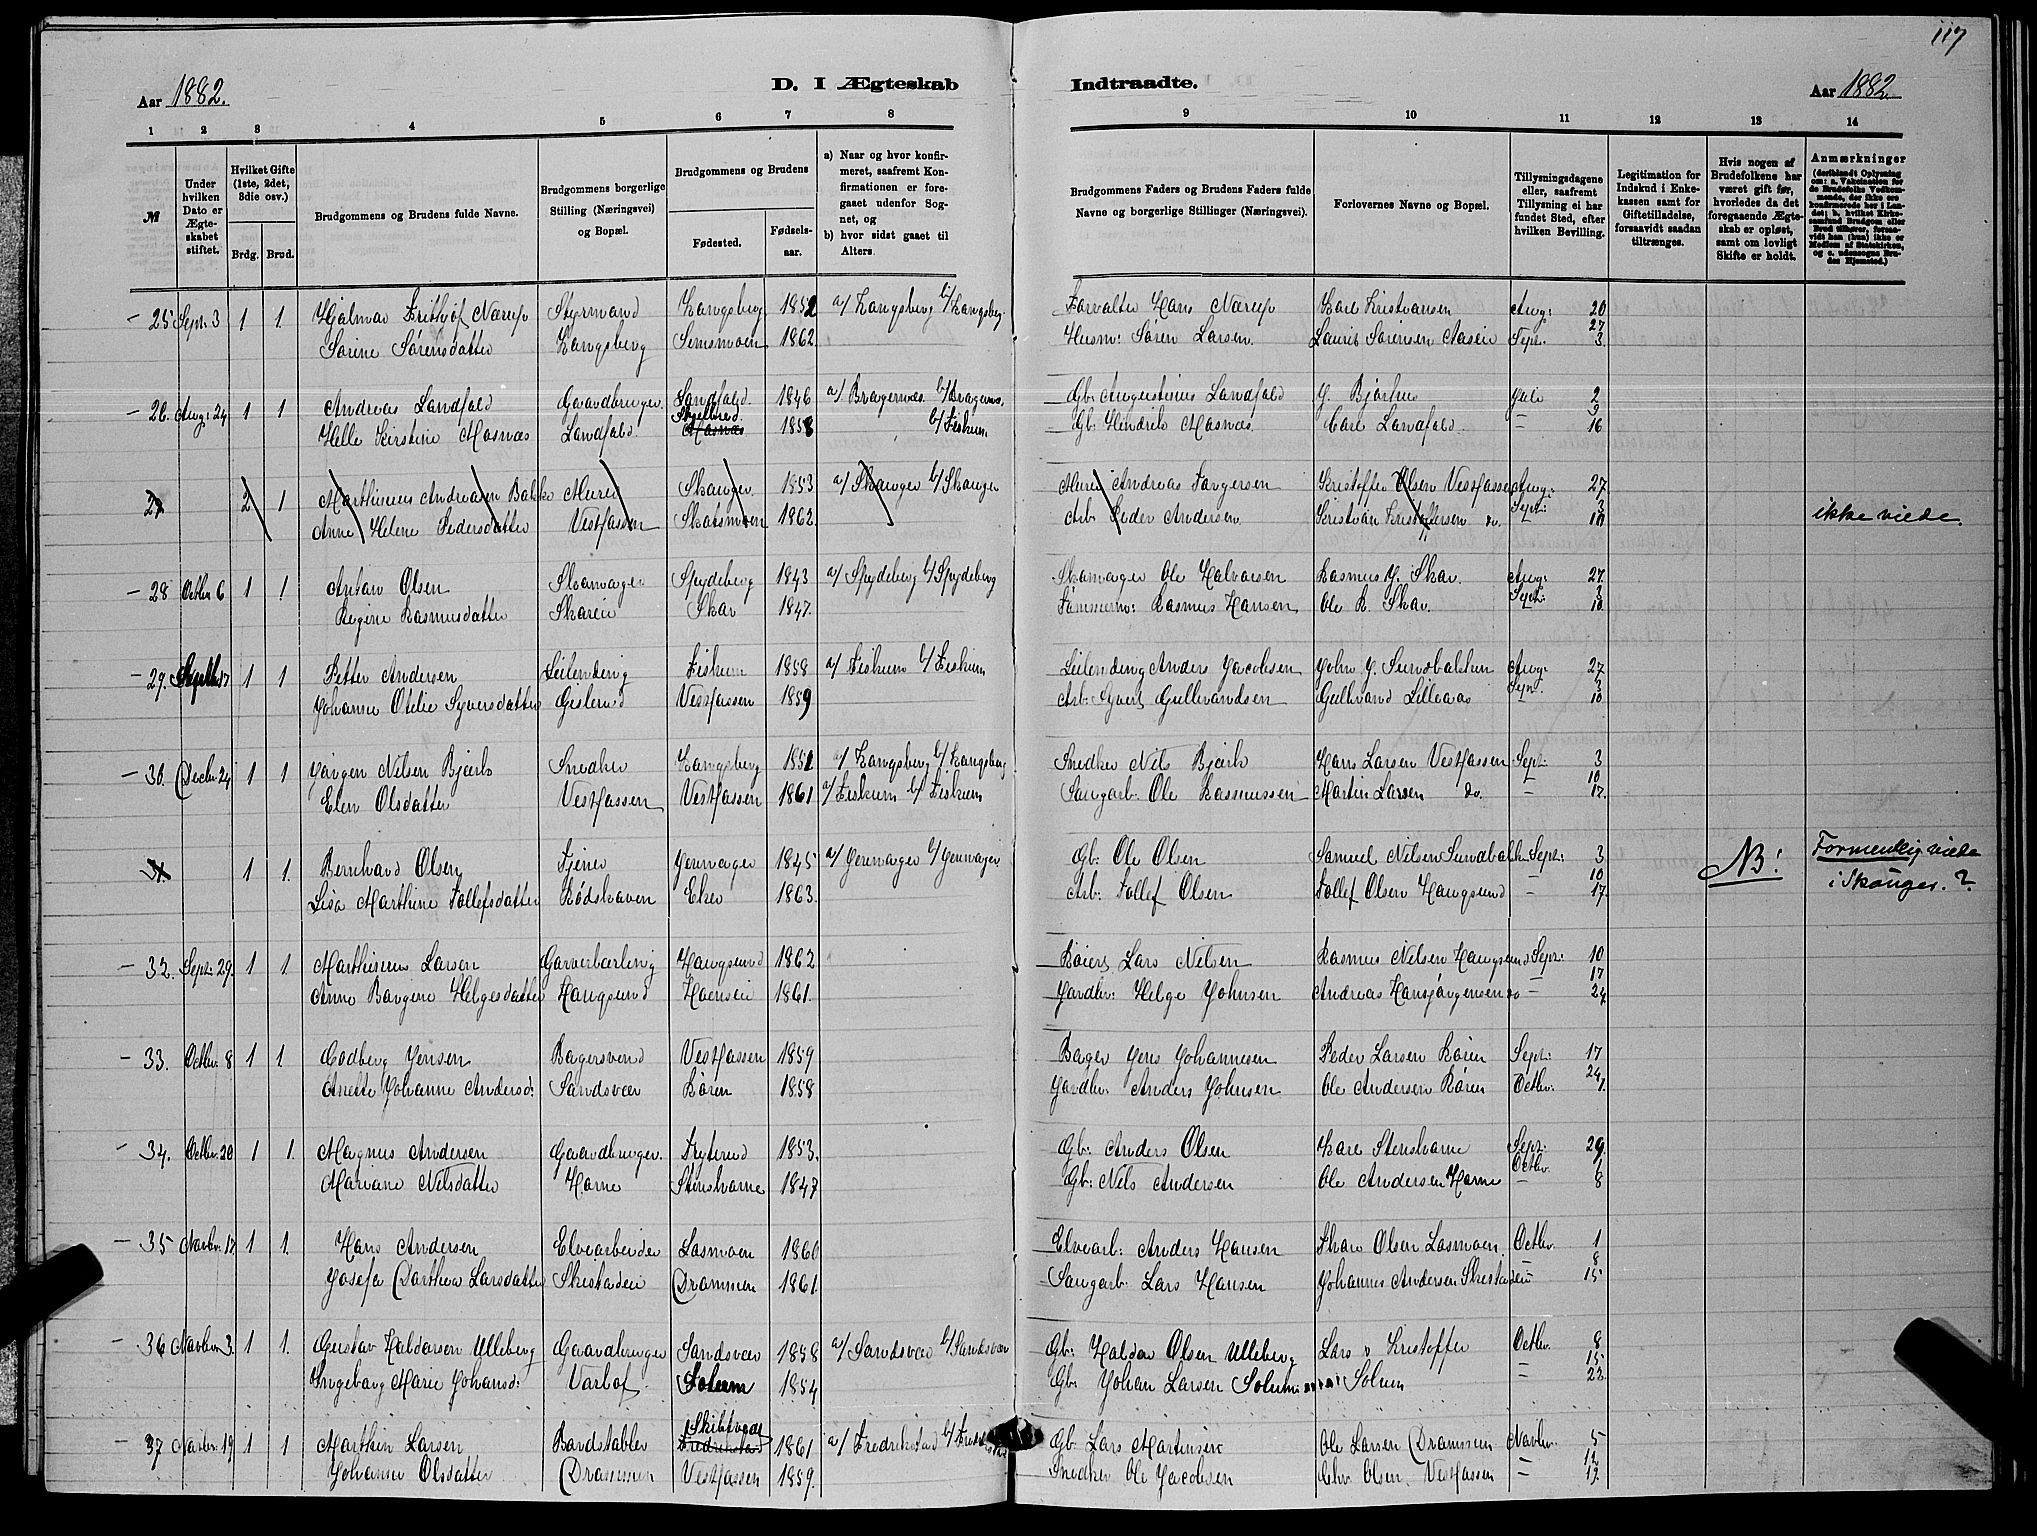 117
Aar 1882.
D. I Ægteskab Indtraadte.
Aar 1882
1 2 3 4 5 6 7 8 9 10 11 12 13 14
№
Under hvilken Dato er Ægteskabet stiftet.
Hvilket Gifte (1ste, 2det, 3die osv.)
Brdg. Brud.
Brudgommens og Brudens fulde Navne.
Brudgommens borgerlige Stilling (Næringsvei) og Bopæl.
Brudgommens og Brudens
Fødested. Fødselsaar.
a) Naar og hvor konfirmeret, saafremt Konfirmationen er foregaaet udenfor Sognet, og
b) hvor sidst gaaet til Alters.
Brudgommens Faders og Brudens Faders fulde Navne og borgerlige Stillinger (Næringsvei).
Forlovernes Navne og Bopæl.
Tillysningsdagene eller, saafremt Tillysning ei har fundet Sted, efter hvilken Bevilling.
Legitimation for Indskud i Enkekassen samt for Giftetilladelse, forsaavidt saadan tiltrænges.
Hvis nogen af Brudefolkene har været gift før, hvorledes da det foregaaende Ægteskab er opløst, samt om lovligt Skifte er holdt.
Anmærkninger
(deriblandt Oplysning om: a. Vakcination for de Brudefolks Vedkommende, der ikke ere konfirmerede her i Landet; b. hvilket Kirkesamfund Brudgom eller Brud tilhører, forsaavidt han (hun) ikke er Medlem af Statskirken, og c. udensogns Brudes Hjemsted.)
25 Sept: 3 1 1. Hjalmar Frithjof Nærup Styrmand Kongsberg 1852 a/ Kongsberg b/ Kongsberg Forvalter Hans Nærup Karl Kristiansen Aug: 20
27
Sørine Sørensdatter Kongsberg Semsmoen 1862. Husm: Søren Larsen Laurits Sørensen Aasen Sept. 3
26. Aug: 24 1 1 Andreas Landfald Gaardbruger Landfald 1846 a/ Bragernæs b/ Bragernæs. Gb. Augustinius Landfald J. Bjerknes Juli 2
9
Helle Kirstine Masnæs Landfald Masnæs 1858 b/ Fiskum Gb: Hendrik Masnæs Carl Landfald – 16
27 2 1 Marthinius Andreasen Bakke Murer Skouger 1853 a/ Skouger b/ Skouger Murer Andreas Torgersen Kristoffer Olsen Vestfossen Aug: 27
Sept: 3
Anne Helene Pedersdatter Vestfossen Skotsmoen 1862. Arb: Peder Andersen Kristian Kristoffersen do. – 10 ikke viede.
28 Octbr 6 1 1 Anton Olsen Skomager Spydeberg 1843 a/ Spydeberg b/ Spydeberg Skomager Ole Halvorsen Rasmus J. Skar Aug: 27.
Sept: 3
Regine Rasmusdatter Skaren Skar 1847. Tømmerm: Rasmus Hansen Ole R. Skar. 10
29. Septbr 17 1 1 Petter Andersen Leilending Fiskum 1858 a/ Fiskum b/ Fiskum Leilending Anders Jacobsen John J. Sundbakken Aug: 27
Sept. 3
Johanne Otilie Syversdatter Gislerud Vestfossen 1859 Arb: Syvert Gullvandsen Gullvand Lilleaas – 10
30. Decbr 24 1 1 Jørgen Nilsen Bjørk Snedker Kongsberg 1851 a/ Kongsberg b/ Kongsberg Snedker Nils Bjørk Hans Larsen Vestfossen Sept: 3
10
Elen Olsdatter Vestfossen Vestfossen 1861 a/ Fiskum b/ Fiskum Saugarb. Ole Rasmussen Martin Larsen do. – 17.
31. 1 1. Bernhard Olsen Tjener Jevnager 1845 a/ Jevnager b/ Jevnager. Gb: Ole Olsen Samuel Nilsen Sundbakken Sept: 3 NB! Formentlig viede
10
Lisa Marthine Tollefsdatter Rødshaven Eker 1863. Arb: Tollef Olsen Tollef Olsen Hougsund – 17. i Skouger. ?
32. Sept: 29. 1 1. Marthinius Larsen Garverlærling Hougsund 1862 Røiert Lars Nilsen Rasmus Nilsen Hougsund Sept: 10
17
Anne Bangine Helgesdatter Hougsund Hoensei 1861. Jordbr: Helge Johnsen Andreas Hansjørgensen do – 24
33. Octbr: 8 1 1. Godberg Jensen Bagersvend Vestfossen 1859 Bager Jens Johannesen Peder Larsen Røren Sept: 17
24
Anette Johanne Andersd: Sandsvær Røren 1858 Jordbr: Anders Johnsen Ole Andersen Røren Octbr: 1.
34. Octbr: 20 1 1. Magnus Andersen Gaardbruger. Fryterud 1853. Gb: Anders Olsen Kare Stenshorne Sept: 24
Octbr. 1
Mariane Nilsdatter Horne Stenshorne 1847 Gb: Nils Andersen Ole Andersen Horne – 8
35 Novbr. 17 1 1. Hans Andersen Elvearbeider Losmoen 1860 Elvearb: Anders Hansen Thor Olsen Losmoen. Octbr. 1
8
Josefa Dorthea Larsdatter Skistadeie Drammen 1861. Saugarb: Lars Hansen Johannes Andersen Skistadeie – 15
36 Novbr 3. 1 1. Gustav Haldorsen Ulleberg Gaardbruger Sandsvær 1858 a/ Sandsvær b/ Sandsvær Gb: Haldor Olsen Ulleberg Lars o Kristoffer Octbr. 8
15
Ingeborg Marie Johansd: Varlof Solum 1854 Gb: Johan Larsen Solum Solum – 22
37 Novbr: 19 1 1 Marthin Larsen Bordstabler Fredrikstad 1861 a/ Fredrikstad b/ Fredrikstad Gb: Lars Martinsen Ole Larsen Drammen Novbr. 5
12
Johanne Olsdatter Drammen Vestfossen 1859. Snedker Ole Jacobsen Chr. Olsen Vestfossen – 19